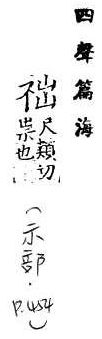 四聲篇海
尺類切
祟也
(示部.P.454)